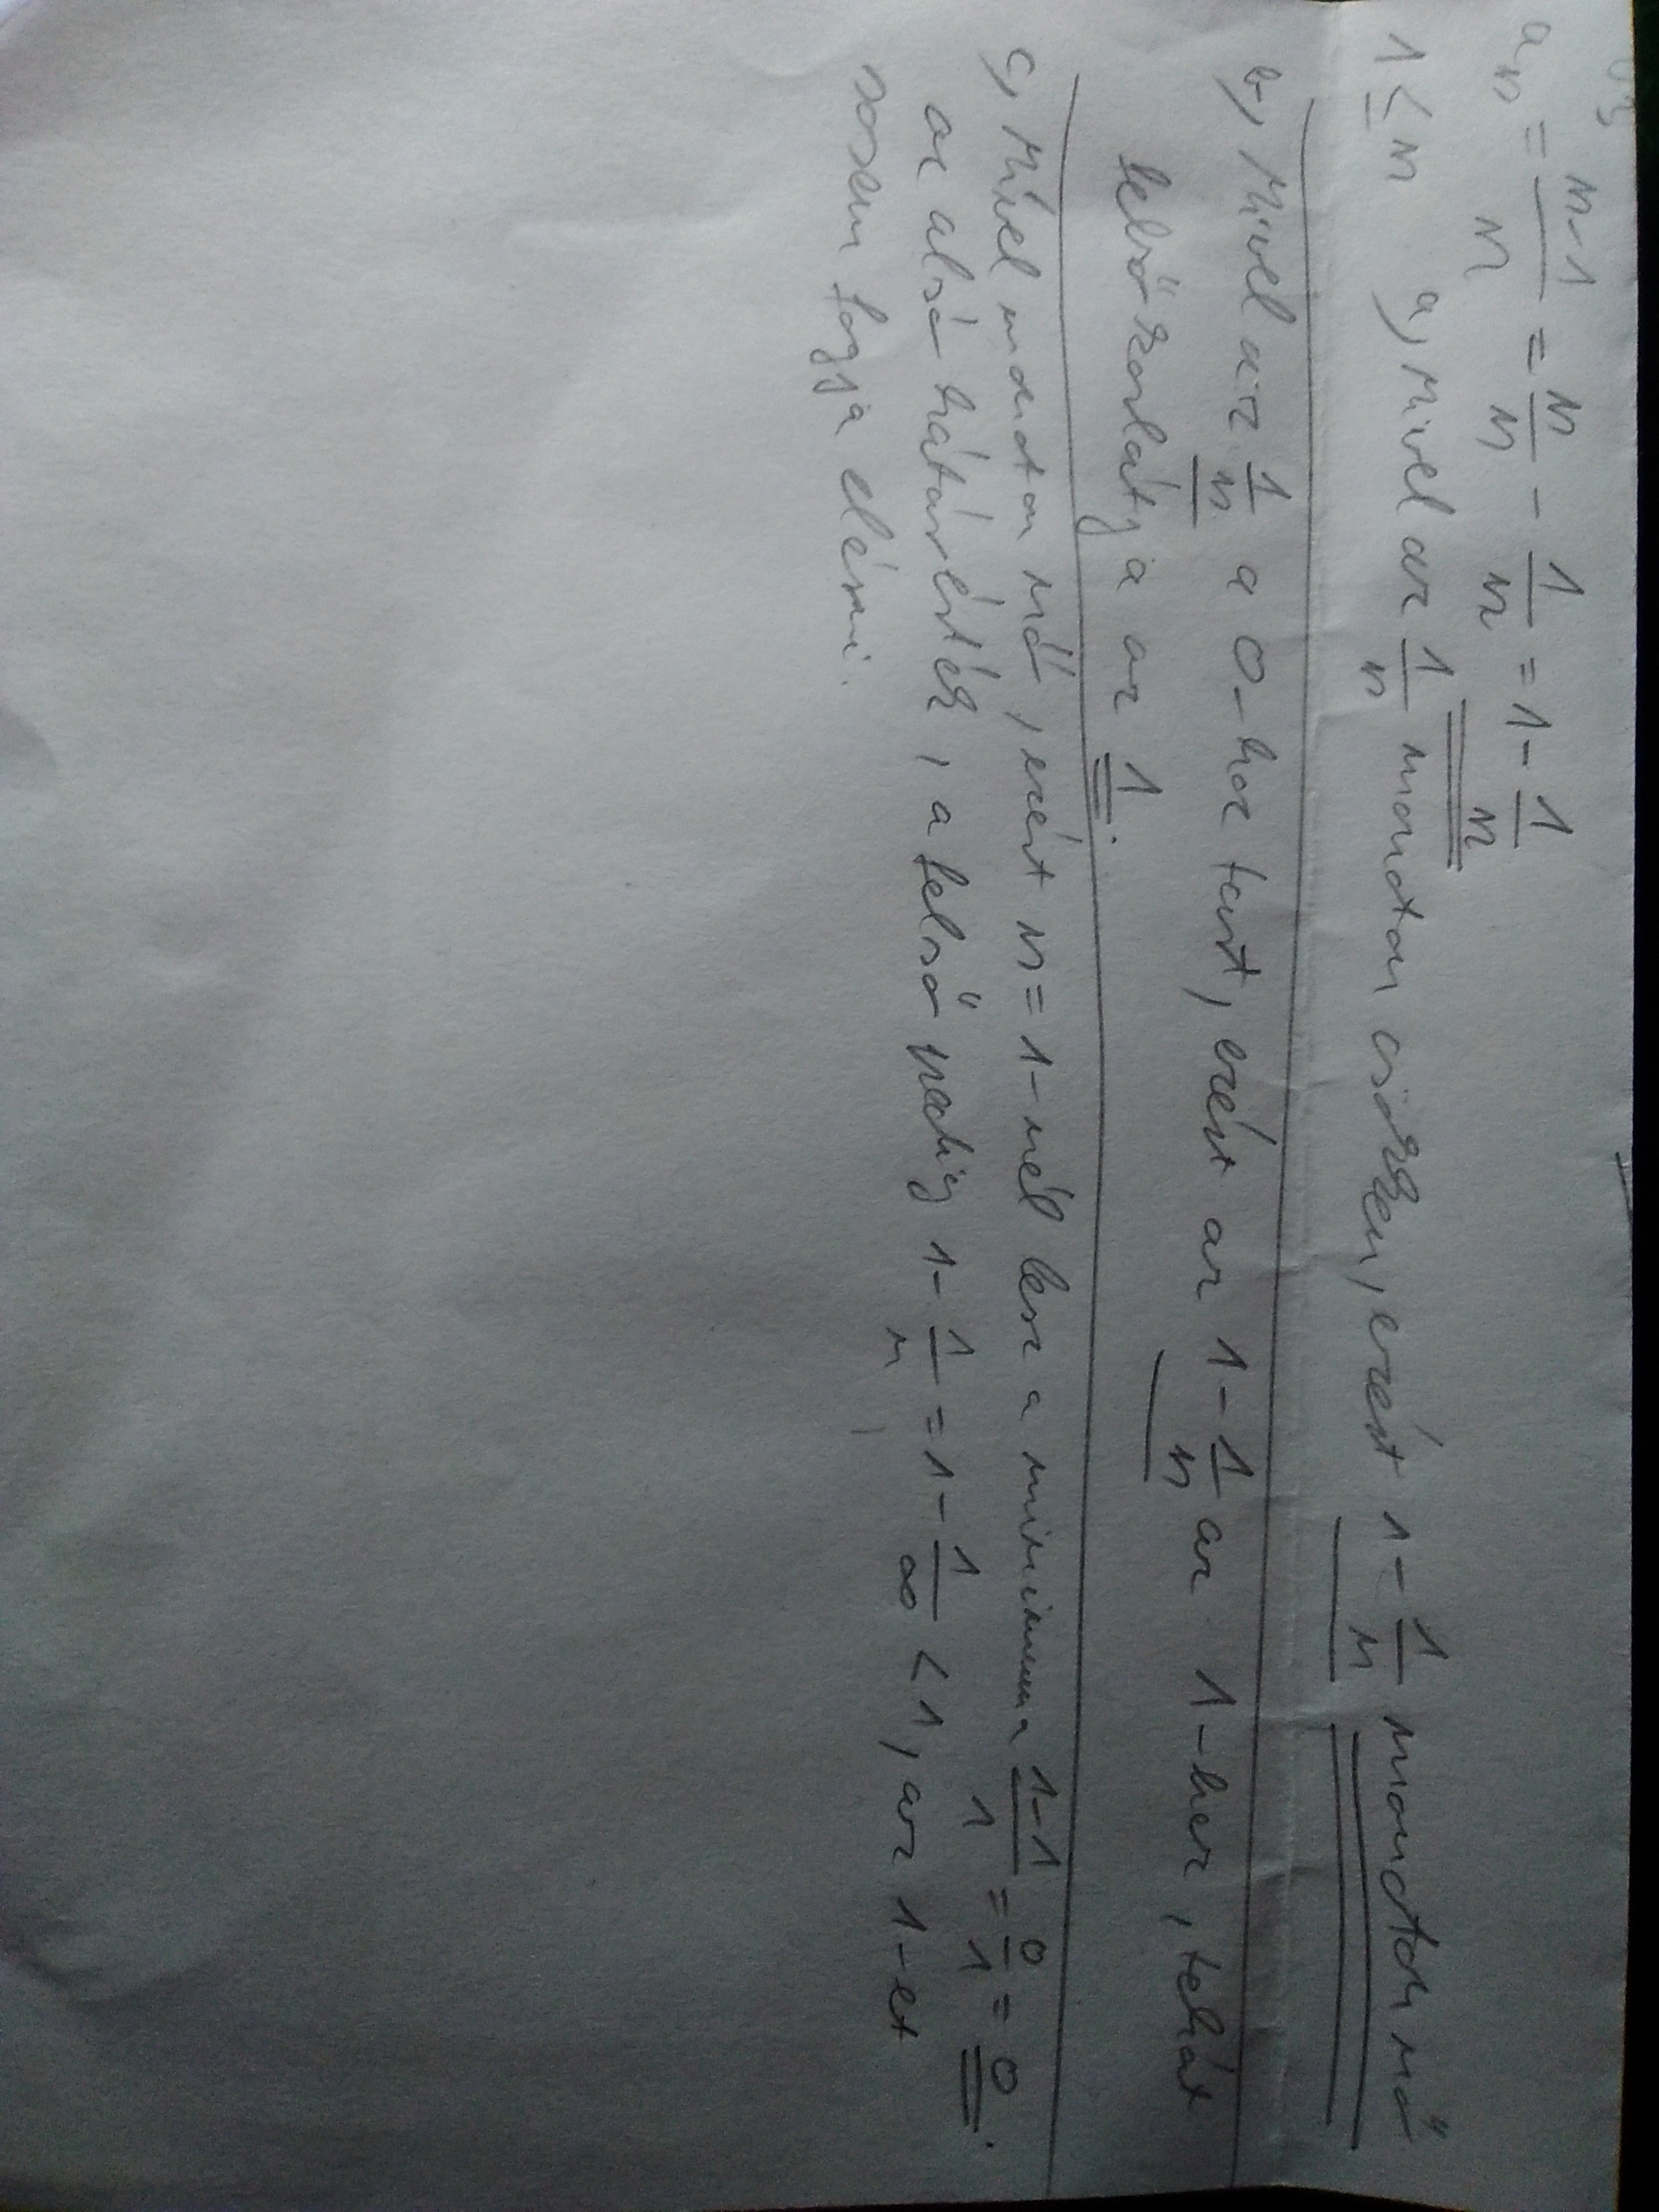 a_n = (n-1)/n = n/n - 1/n = 1 - 1/n
1 ≤ n a, Mivel az 1/n monoton csökken, ezért 1 - 1/n monoton nő
b, Mivel az 1/n a 0-hoz tart, ezért az 1 - 1/n az 1-hez, tehát
felső korlátja az 1.
c, Mivel monoton nő, ezért n = 1-nél lesz a minimuma (1-1)/1 = 0/1 = 0.
az alsó határérték, a felső pedig 1 - 1/n = 1 - 1/∞ < 1, az 1-et
sosem fogja elérni.